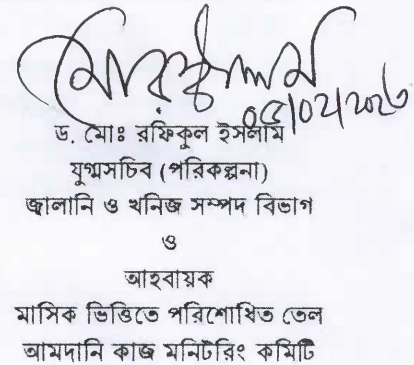 ড. মোঃ রফিকুল ইসলাম
যুগ্মসচিব (পরিকল্পনা)
জ্বালানি ও খনিজ সম্পদ বিভাগ
ও
আহবায়ক
মাসিক ভিত্তিতে পরিশোধিত তেল
আমদানি কাজ মনিটরিং কমিটি